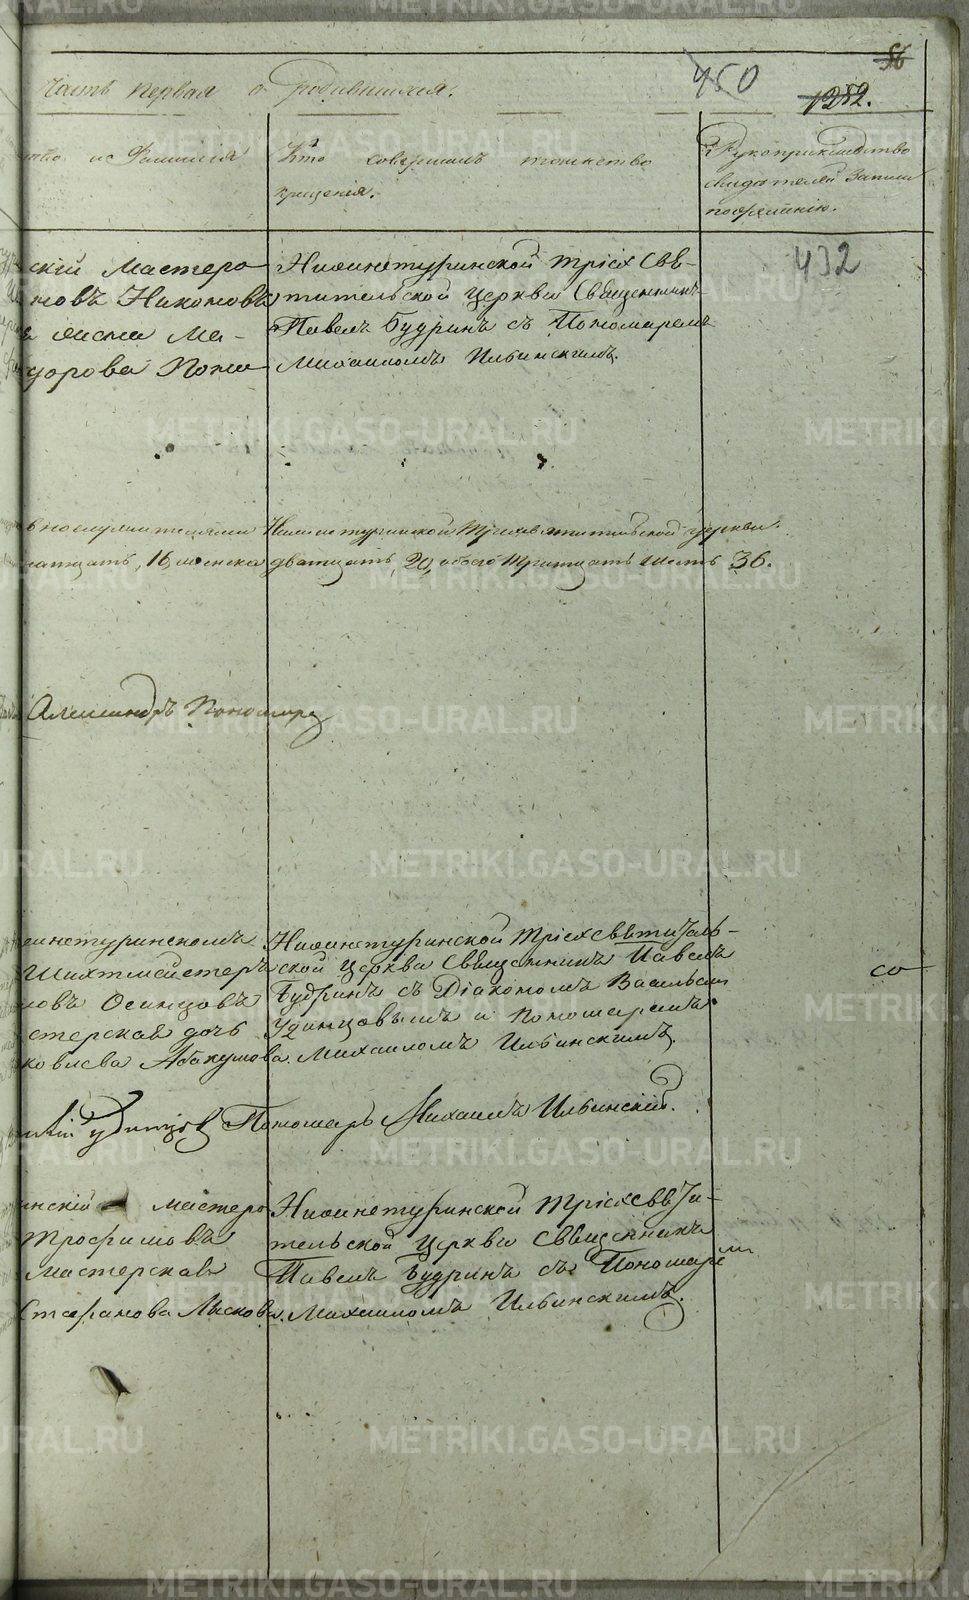 Часть первая о родившихся.
450
56
1282.
тво и Фамилія
Кто совершалъ таинство
крещенія.
Рукоприкладство
свидѣтелей записи
по желанію.
432
скій мастеро
новъ Никоновъ
Ма-
дорова
Нижнетуринской Трiехсвя-
тительской Церкви Священникъ
Павелъ Будринъ съ Пономаремъ
Михаиломъ Ильинскимъ.
Нижнетуринской Трехсвятительской церкви.
натцать, 16, женска дватцать, 20, обоего тритцать шесть 36.
Александръ Пономаре
жнетуринскомъ
Шихтмейстеръ
новъ Осинцовъ
стерская дочь
ковлева Абакумова
Нижнетуринской Трiехсвятитель-
ской Церкви Священникъ Павелъ
Будринъ съ Діакономъ Васильем
Удинцовымъ и Пономаремъ
Михаиломъ Ильинскимъ.
Удинцов Пономарь Михаилъ Ильинскій.
инскій мастеро
Трофимовъ
мастерская
Стефанова Лыскова
Нижнетуринской Трiехсвяти-
тельской Церкви Священникъ
Павелъ Будринъ съ Пономарем
Михаиломъ Ильинскимъ.
METRIKI.GASO-URAL.RU